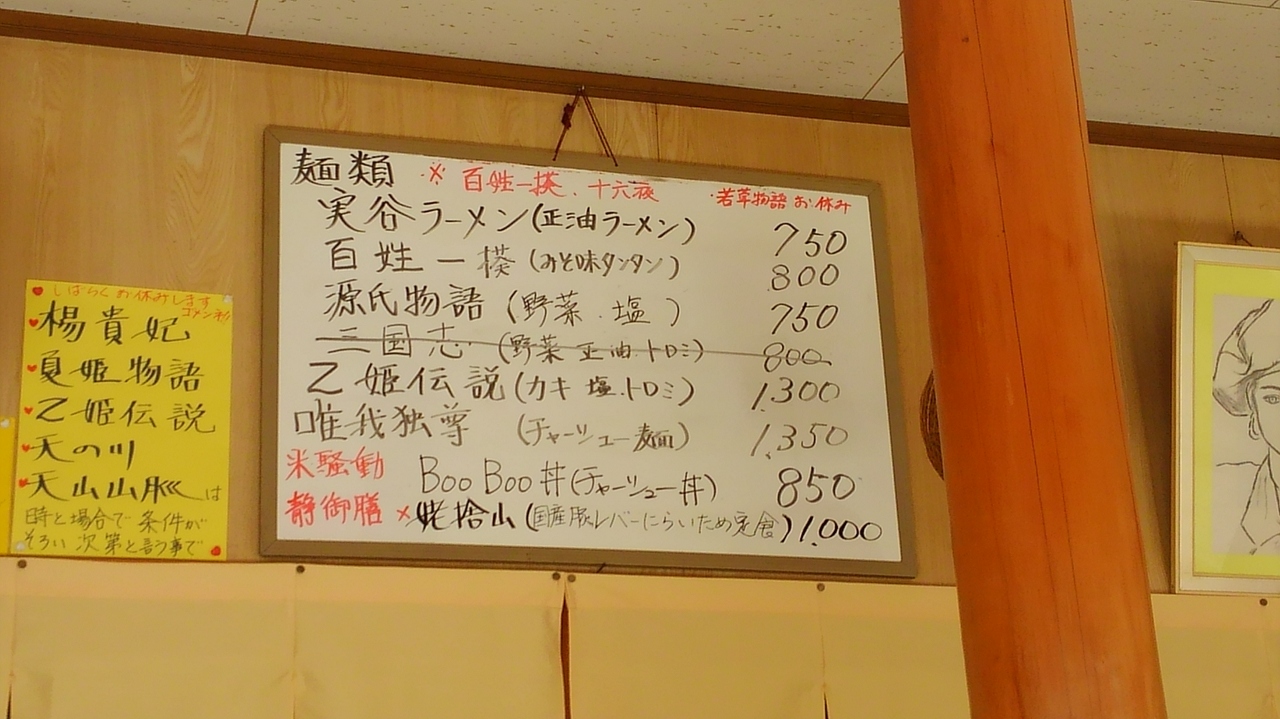 麺類 ※百姓一揆.十六夜 ・若草物語お休み
実谷ラーメン(正油ラーメン) 750
百姓一揆(みそ味タンタン) 800
源氏物語(野菜.塩) 750
三国志(野菜正油トロミ) 800
乙姫伝説(カキ塩.トロミ) 1.300
唯我独尊(チャーシュー麺) 1,350
米騒動 Boo Boo丼(チャーシュー丼) 850
静御膳 ×姥捨山(国産豚レバーにらいため定食) 1.000
しばらくお休みします
ゴメンネ
楊貴妃
夏姫物語
乙姫伝説
天の川
天山山脈は
時と場合で条件が
そろい次第と言う事で